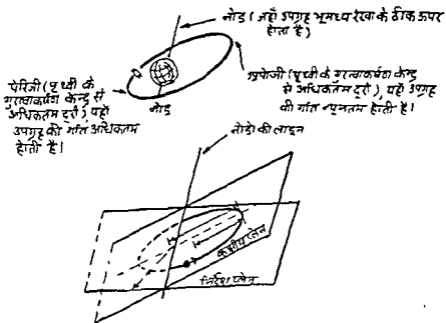 नोड (जहाँ उपग्रह भूमध्य रेखा के ठीक ऊपर
होता है)
अपोजी (पृथ्वी के गुरुत्वाकर्षण केन्द्र
से अधिकतम दूरी), यहाँ उपग्रह
की गति न्यूनतम होती है।
पेरिजी (पृथ्वी के
गुरुत्वाकर्षण केन्द्र से
अधिकतम दूरी), यहाँ
उपग्रह की गति अधिकतम
होती है।
नोड
नोडो की लाइन
कक्षीय प्लेन
निर्देश प्लेन